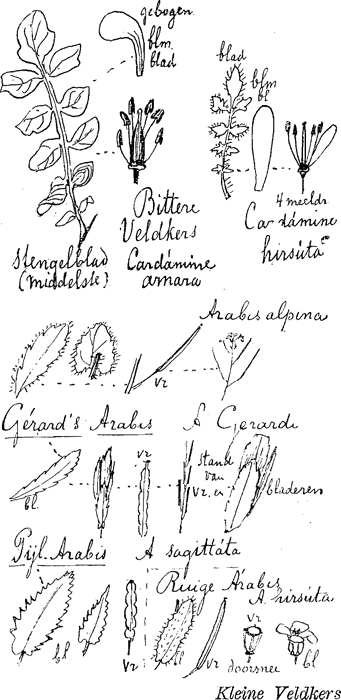 gebogen
blm
blad
blad
blm
bl
Bittere
Veldkers
Cardámine
amara
Stengelblad
(middelste)
4 meeldr.
Cardámine
hirsúta
Arabis alpina
vr
Gérard's Arabis
A Gerardi
bl.
vr
stand
van
vr. en
bladeren
Pijl. Arabis
A sagittáta
Ruige Árabis
A. hirsúta
bl
vr
bl
vr
vr
doorsnee
bl
Kleine Veldkers